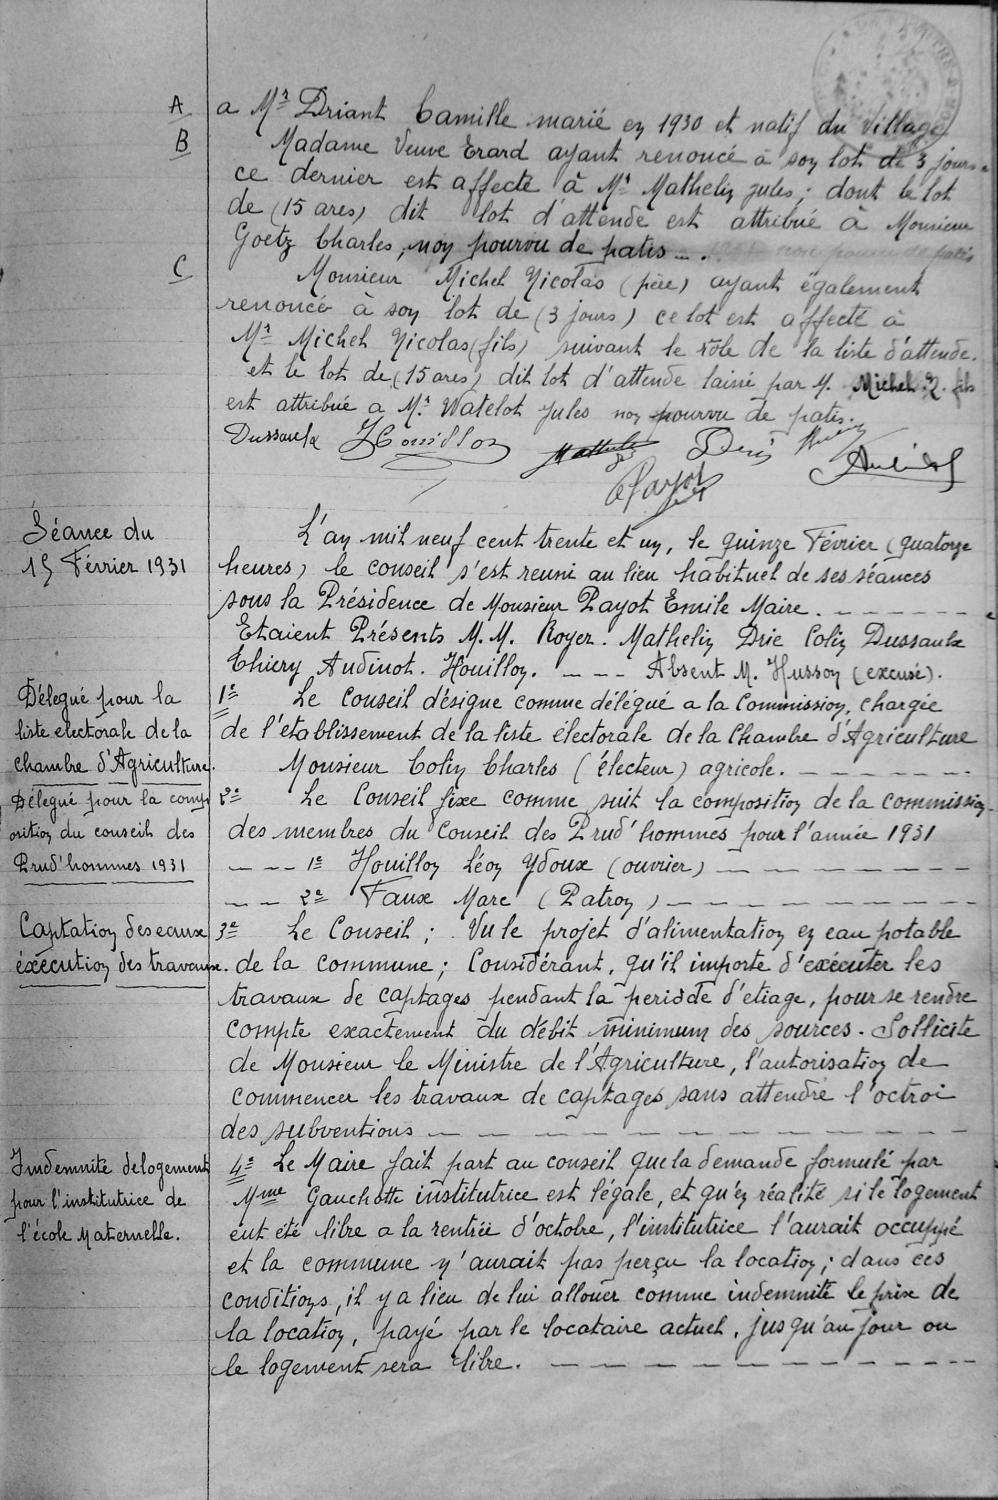 A
a Mr Driant Camille marié en 1930 et natif du Village
B
Madame Veuve Erard ayant renoncé à son lot de 3 jours.
ce dernier est affecté à Mr Mathelin Jules ; dont le lot
de (15 ares) dit lot d'attende est attribué à Monsieur
Goetz Charles, non pourvu de patis - .
C
Monsieur Michel Nicolas (père) ayant également
renoncé à son lot de (3 jours) ce lot est affecté à
Mr Michel Nicolas (fils) suivant le rôle de la liste d'attende.
et le lot de (15 ares) dit lot d'attende laissé par M. Michel N. fils
est attribué a Mr Watelot Jules non pourvu de patis.
Dussaulx Houillon Mathelin Dric Thiery
Payot Audinot
Séance du
15 Février 1931
L'an mil neuf cent trente et un, le quinze Février (quatorze
heures) le conseil s'est reuni au lieu habituel de ses séances
sous la Présidence de Monsieur Payot Emile Maire.
Etaient Présents M.M. Royer. Mathelin Dric Colin Dussaulx
Thiery Audinot. Houillon. - - - Absent M. Husson (excusé).
Délegué pour la
liste electorale de la
chambre d'Agriculture.
1e Le Conseil désigne comme délégué a la Commission, chargée
de l'établissement de la liste électorale de la Chambre d'Agriculture
Monsieur Colin Charles (électeur) agricole.
Délegué pour la comp
osition du conseil des
Prud'hommes 1931
2e Le Conseil fixe comme suit la composition de la commission
des membres du Conseil des Prud'hommes pour l'année 1931
- - - 1e Houillon Léon Ydoux (ouvrier)
- - 2e Faux Marc (Patron)
Captation des eaux
éxécution des travaux.
3e Le Conseil ; Vu le projet d'alimentation en eau potable
de la commune ; Considérant, qu'il importe d'exécuter les
travaux de captages pendant la periode d'etiage, pour se rendre
compte exactement du débit minimum des sources. Sollicite
de Monsieur le Ministre de l'Agriculture, l'autorisation de
commencer les travaux de captages sans attendre l'octroi
des subventions
Indemnité de logement
pour l'institutrice de
l'école Maternelle.
4e Le Maire fait part au conseil que la demande formulé par
Mme Gauchotte institutrice est légale, et qu'en réalité si le logement
eut été libre a la rentrée d'octobre, l'institutrice l'aurait occuppé
et la commune n'aurait pas perçu la location ; dans ces
conditions, il y a lieu de lui allouer comme indemnité le prix de
la location, payé par le locataire actuel, jusqu'au jour ou
le logement sera libre.